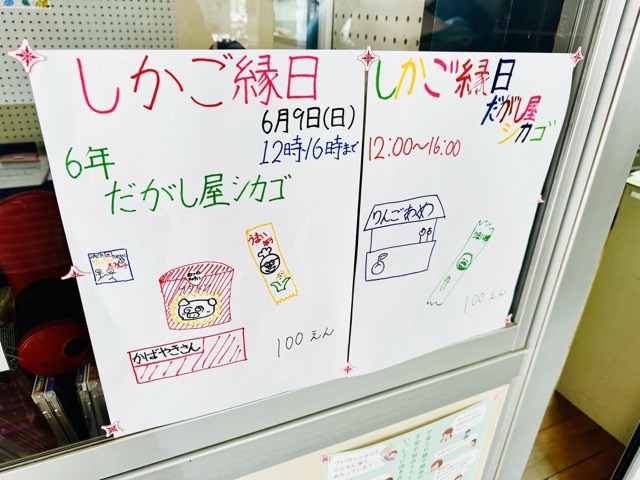 しかご縁日
6月9日(日)
12時~16時まで
6年
だがし屋シカゴ
うまい棒
かばやきさん
100えん
しかご縁日
だがし屋
シカゴ
12:00~16:00
りんごあめ
100えん